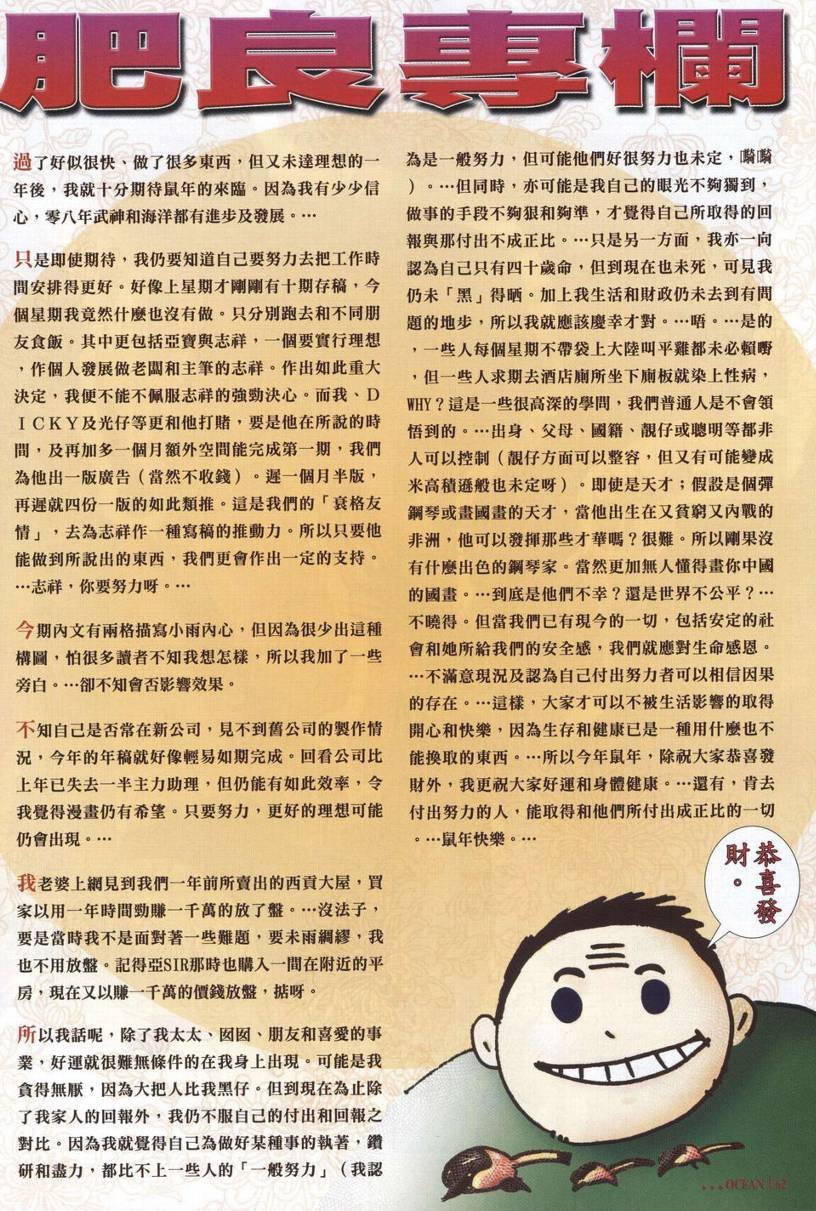 肥良專欄
過了好似很快、做了很多東西，但又未達理想的一
年後，我就十分期待鼠年的來臨。因為我有少少信
心，零八年武神和海洋都有進步及發展。…
只是即使期待，我仍要知道自己要努力去把工作時
間安排得更好。好像上星期才剛剛有十期存稿，今
個星期我竟然什麼也沒有做。只分別跑去和不同朋
友食飯。其中更包括亞寶與志祥，一個要實行理想
，作個人發展做老闆和主筆的志祥。作出如此重大
決定，我便不能不佩服志祥的強勁決心。而我、Ｄ
ＩＣＫＹ及光仔等更和他打賭，要是他在所說的時
間，及再加多一個月額外空間能完成第一期，我們
為他出一版廣告（當然不收錢）。遲一個月半版，
再遲就四份一版的如此類推。這是我們的「衰格友
情」，去為志祥作一種寫稿的推動力。所以只要他
能做到所說出的東西，我們更會作出一定的支持。
…志祥，你要努力呀。…
今期內文有兩格描寫小雨內心，但因為很少出這種
構圖，怕很多讀者不知我想怎樣，所以我加了一些
旁白。…卻不知會否影響效果。
不知自己是否常在新公司，見不到舊公司的製作情
況，今年的年稿就好像輕易如期完成。回看公司比
上年已失去一半主力助理，但仍能有如此效率，令
我覺得漫畫仍有希望。只要努力，更好的理想可能
仍會出現。…
我老婆上網見到我們一年前所賣出的西貢大屋，買
家以用一年時間勁賺一千萬的放了盤。…沒法子，
要是當時我不是面對著一些難題，要未雨綢繆，我
也不用放盤。記得亞SIR那時也購入一間在附近的平
房，現在又以賺一千萬的價錢放盤，掂呀。
所以我話呢，除了我太太、囡囡、朋友和喜愛的事
業，好運就很難無條件的在我身上出現。可能是我
貪得無厭，因為大把人比我黑仔。但到現在為止除
了我家人的回報外，我仍不服自己的付出和回報之
對比。因為我就覺得自己為做好某種事的執著，鑽
研和盡力，都比不上一些人的「一般努力」（我認
為是一般努力，但可能他們好很努力也未定，騎騎
）。…但同時，亦可能是我自己的眼光不夠獨到，
做事的手段不夠狠和夠準，才覺得自己所取得的回
報與那付出不成正比。…只是另一方面，我亦一向
認為自己只有四十歲命，但到現在也未死，可見我
仍未「黑」得晒。加上我生活和財政仍未去到有問
題的地步，所以我就應該慶幸才對。…唔。…是的
，一些人每個星期不帶袋上大陸叫平雞都未必賴嘢
，但一些人求期去酒店廁所坐下廁板就染上性病，
WHY？這是一些很高深的學問，我們普通人是不會領
悟到的。…出身、父母、國籍、靚仔或聰明等都非
人可以控制（靚仔方面可以整容，但又有可能變成
米高積遜般也未定呀）。即使是天才；假設是個彈
鋼琴或畫國畫的天才，當他出生在又貧窮又內戰的
非洲，他可以發揮那些才華嗎？很難。所以剛果沒
有什麼出色的鋼琴家。當然更加無人懂得畫你中國
的國畫。…到底是他們不幸？還是世界不公平？…
不曉得。但當我們已有現今的一切，包括安定的社
會和她所給我們的安全感，我們就應對生命感恩。
…不滿意現況及認為自己付出努力者可以相信因果
的存在。…這樣，大家才可以不被生活影響的取得
開心和快樂，因為生存和健康已是一種用什麼也不
能換取的東西。…所以今年鼠年，除祝大家恭喜發
財外，我更祝大家好運和身體健康。…還有，肯去
付出努力的人，能取得和他們所付出成正比的一切
。…鼠年快樂。…
恭喜發
財。
...OCEAN 162